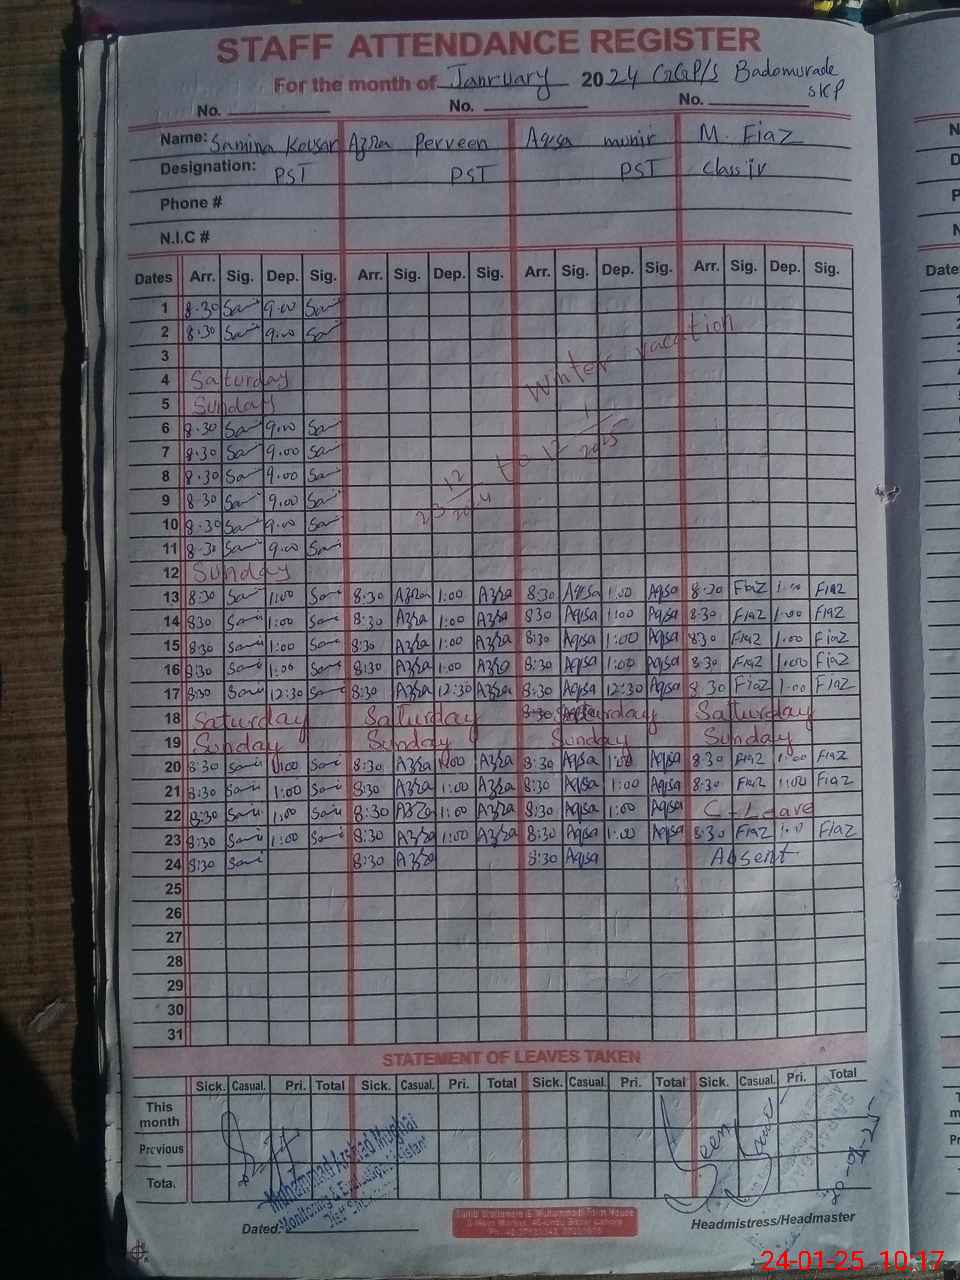 STAFF ATTENDANCE REGISTER
For the month of January 2024 GGP/S Badomurade
SKP
No. No. No.
Name: Samina Kousar Azra Perveen Aqsa munir M. Fiaz
Designation: PST PST PST Class iv
Phone #
N.I.C #
Dates Arr. Sig. Dep. Sig. Arr. Sig. Dep. Sig. Arr. Sig. Dep. Sig. Arr. Sig. Dep. Sig.
1 8:30 Sami 9:00 Sami
2 8:30 Sami 9:00 Sami
3
Winter vacation
4 Saturday
5 Sunday
6 8:30 Sami 9:00 Sami
7 8:30 Sami 9:00 Sami
23 12/2024 to 12 1/2025
8 8:30 Sami 9:00 Sami
9 8:30 Sami 9:00 Sami
10 8:30 Sami 9:00 Sami
11 8:30 Sami 9:00 Sami
12 Sunday
13 8:30 Sami 1:00 Sami 8:30 Azra 1:00 Azra 8:30 Aqsa 1:00 Aqsa 8:20 Fiaz 1:00 Fiaz
14 8:30 Sami 1:00 Sami 8:30 Azra 1:00 Azra 8:30 Aqsa 1:00 Aqsa 8:30 Fiaz 1:00 Fiaz
15 8:30 Sami 1:00 Sami 8:30 Azra 1:00 Azra 8:30 Aqsa 1:00 Aqsa 8:30 Fiaz 1:00 Fiaz
16 8:30 Sami 1:00 Sami 8:30 Azra 1:00 Azra 8:30 Aqsa 1:00 Aqsa 8:30 Fiaz 1:00 Fiaz
17 8:30 Sami 12:30 Sami 8:30 Azra 12:30 Azra 8:30 Aqsa 12:30 Aqsa 8:30 Fiaz 1:00 Fiaz
18 Saturday Saturday 8:30 Saturday Saturday
19 Sunday Sunday Sunday Sunday
20 8:30 Sami 1:00 Sami 8:30 Azra 1:00 Azra 8:30 Aqsa 1:00 Aqsa 8:30 Fiaz 1:00 Fiaz
21 8:30 Sami 1:00 Sami 8:30 Azra 1:00 Azra 8:30 Aqsa 1:00 Aqsa 8:30 Fiaz 1:00 Fiaz
22 8:30 Sami 1:00 Sami 8:30 Azra 1:00 Azra 8:30 Aqsa 1:00 Aqsa C-Leave
23 8:30 Sami 1:00 Sami 8:30 Azra 1:00 Azra 8:30 Aqsa 1:00 Aqsa 8:30 Fiaz 1:00 Fiaz
24 8:30 Sami 8:30 Azra 8:30 Aqsa Absent
25
26
27
28
29
30
31
STATEMENT OF LEAVES TAKEN
Sick. Casual. Pri. Total Sick. Casual. Pri. Total Sick. Casual. Pri. Total Sick. Casual. Pri. Total
This month
Previous
Tota.
Seen
Muhammad Arshad Mughal
Monitoring & Evaluation Assistant
Dated: Headmistress/Headmaster
24-01-25 10:17